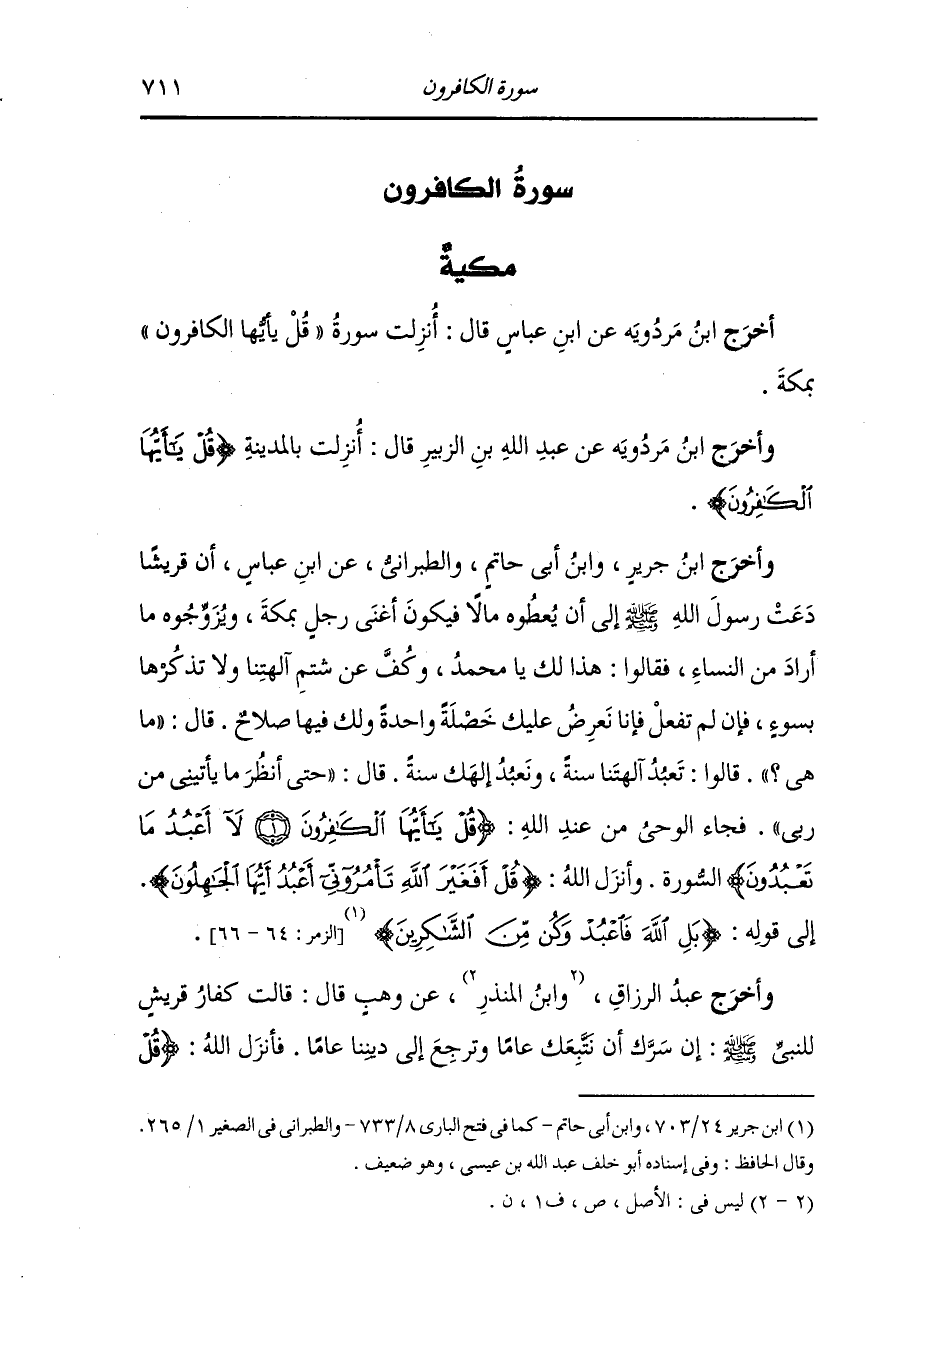 سورة الكافرون ٧١١
سورةُ الكافرون
مكيةٌ
أخرَج ابنُ مَردُويَه عن ابنِ عباسٍ قال : أُنزِلت سورةُ « قُلْ يأيُّها الكافرون »
بمكةَ .
وأخرَج ابنُ مَردُويَه عن عبدِ اللهِ بنِ الزبيرِ قال : أُنزِلت بالمدينةِ ﴿قُلْ يَٰٓأَيُّهَا
ٱلْكَٰفِرُونَ﴾ .
وأخرَج ابنُ جريرٍ ، وابنُ أبى حاتمٍ ، والطبرانىُّ ، عن ابنِ عباسٍ ، أن قريشًا
دَعَتْ رسولَ اللهِ ﷺ إلى أن يُعطُوه مالًا فيكونَ أغنَى رجلٍ بمكةَ ، ويُزَوِّجُوه ما
أرادَ من النساءِ ، فقالوا : هذا لك يا محمدُ ، وكُفَّ عن شتمِ آلهتِنا ولا تذكُرْها
بسوءٍ ، فإن لم تفعلْ فإنا نَعرِضُ عليك خَصْلَةً واحدةً ولك فيها صلاحٌ . قال : «ما
هى ؟» . قالوا : تَعبُدُ آلهتَنا سنةً ، ونَعبُدُ إلهَك سنةً . قال : «حتى أنظُرَ ما يأتينى من
ربى» . فجاء الوحىُ من عندِ اللهِ : ﴿قُلْ يَٰٓأَيُّهَا ٱلْكَٰفِرُونَ ۝١ لَآ أَعْبُدُ مَا
تَعْبُدُونَ﴾ السُّورة . وأنزَل اللهُ : ﴿قُلْ أَفَغَيْرَ ٱللَّهِ تَأْمُرُوٓنِّىٓ أَعْبُدُ أَيُّهَا ٱلْجَٰهِلُونَ﴾ .
إلى قولِه : ﴿بَلِ ٱللَّهَ فَٱعْبُدْ وَكُن مِّنَ ٱلشَّٰكِرِينَ﴾ (١) [الزمر : ٦٤ - ٦٦] .
وأخرَج عبدُ الرزاقِ ، (٢ وابنُ المنذرِ ٢) ، عن وهبٍ قال : قالت كفارُ قريشٍ
للنبىِّ ﷺ : إن سَرَّك أن نَتَّبِعَك عامًا وترجِعَ إلى دينِنا عامًا . فأنزَل اللهُ : ﴿قُلْ
(١) ابن جرير ٧٠٣/٢٤ ، وابن أبى حاتم - كما فى فتح البارى ٧٣٣/٨ - والطبرانى فى الصغير ١/ ٢٦٥ .
وقال الحافظ : وفى إسناده أبو خلف عبد الله بن عيسى ، وهو ضعيف .
(٢ - ٢) ليس فى : الأصل ، ص ، ف١ ، ن .